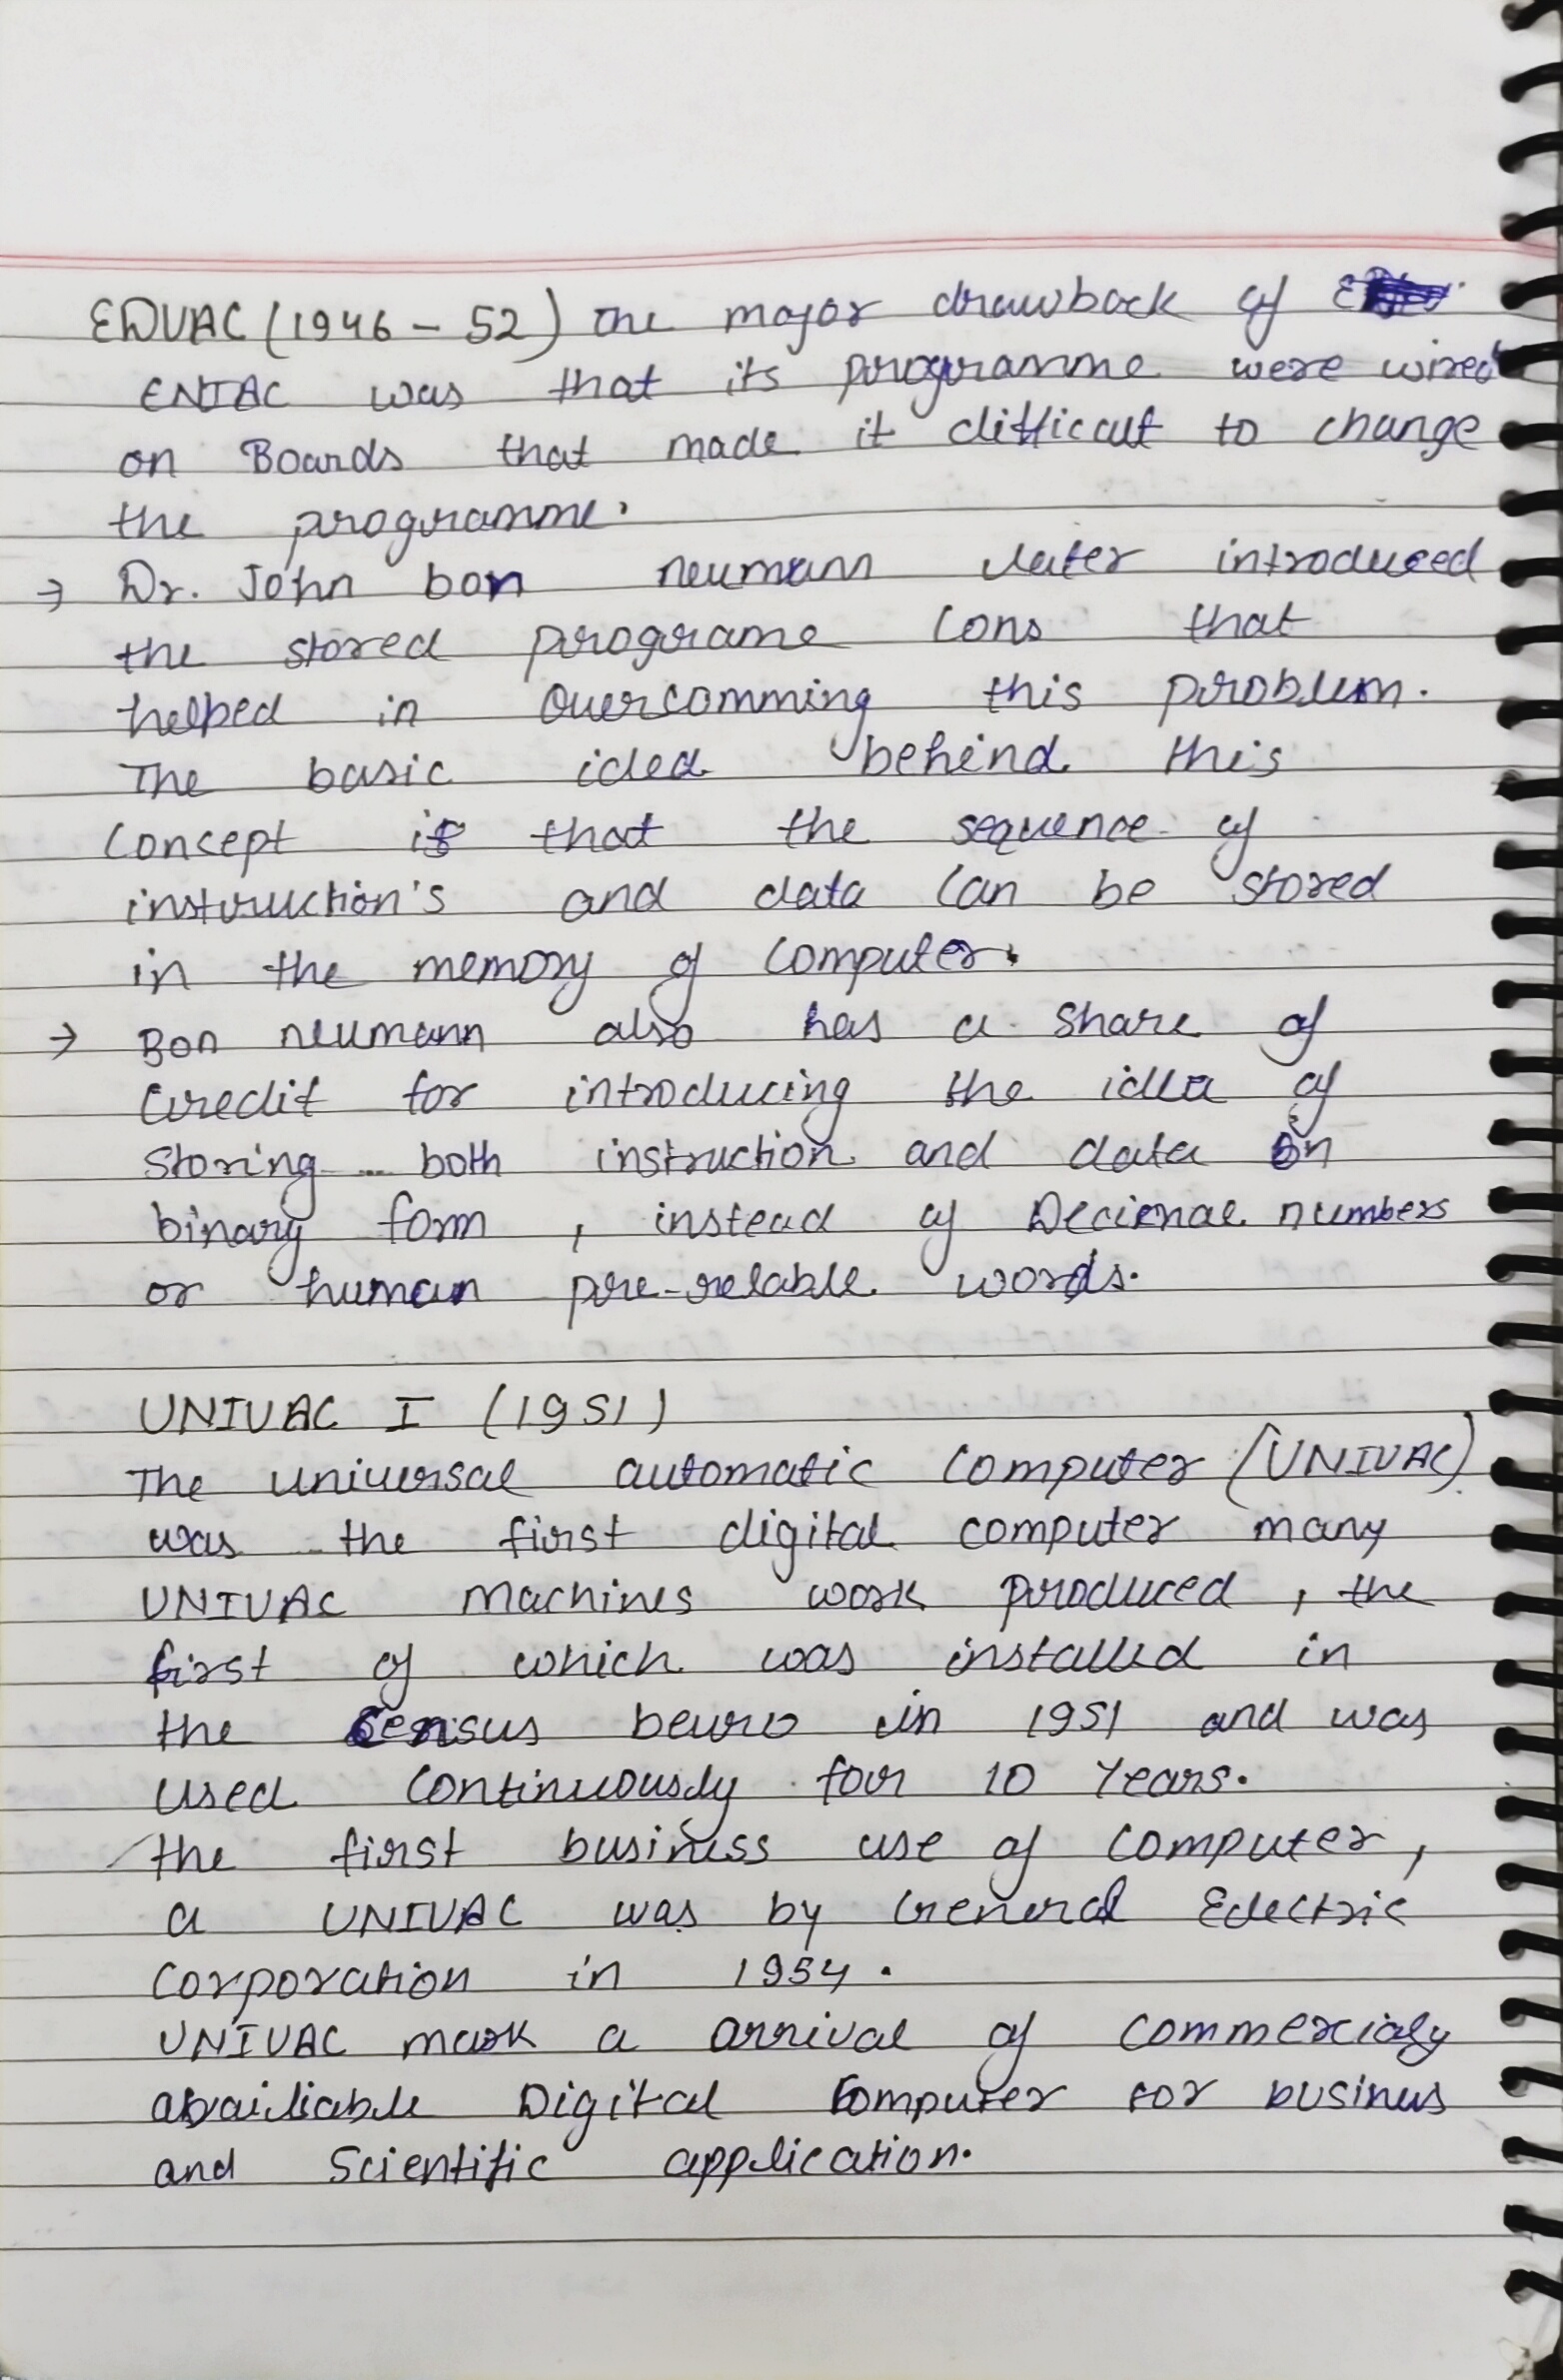 EDVAC (1946 - 52) The major drawback of
ENIAC was that its programme were wired
on Boards that made it difficult to change
the programme.
→ Dr. John bon neumann later introduced
the stored programe Cons that
helped in overcomming this problem.
The basic idea behind this
Concept is that the sequence of
instruction's and data Can be stored
in the memory of Computer.
→ Bon neumann also has a share of
Credit for introducing the idea of
storing both instruction and data in
binary form , instead of Decimal numbers
or human pre-relable words.
UNIVAC I (1951)
The universal automatic Computer (UNIVAC)
was the first digital computer many
UNIVAC Machines work produced , the
first of which was installed in
the Census beuro in 1951 and was
used Continuously for 10 Years.
the first business use of Computer ,
a UNIVAC was by General Electric
Corporation in 1954 .
UNIVAC mark a arrival of commercialy
abailiable Digital Computer for business
and Scientific application.